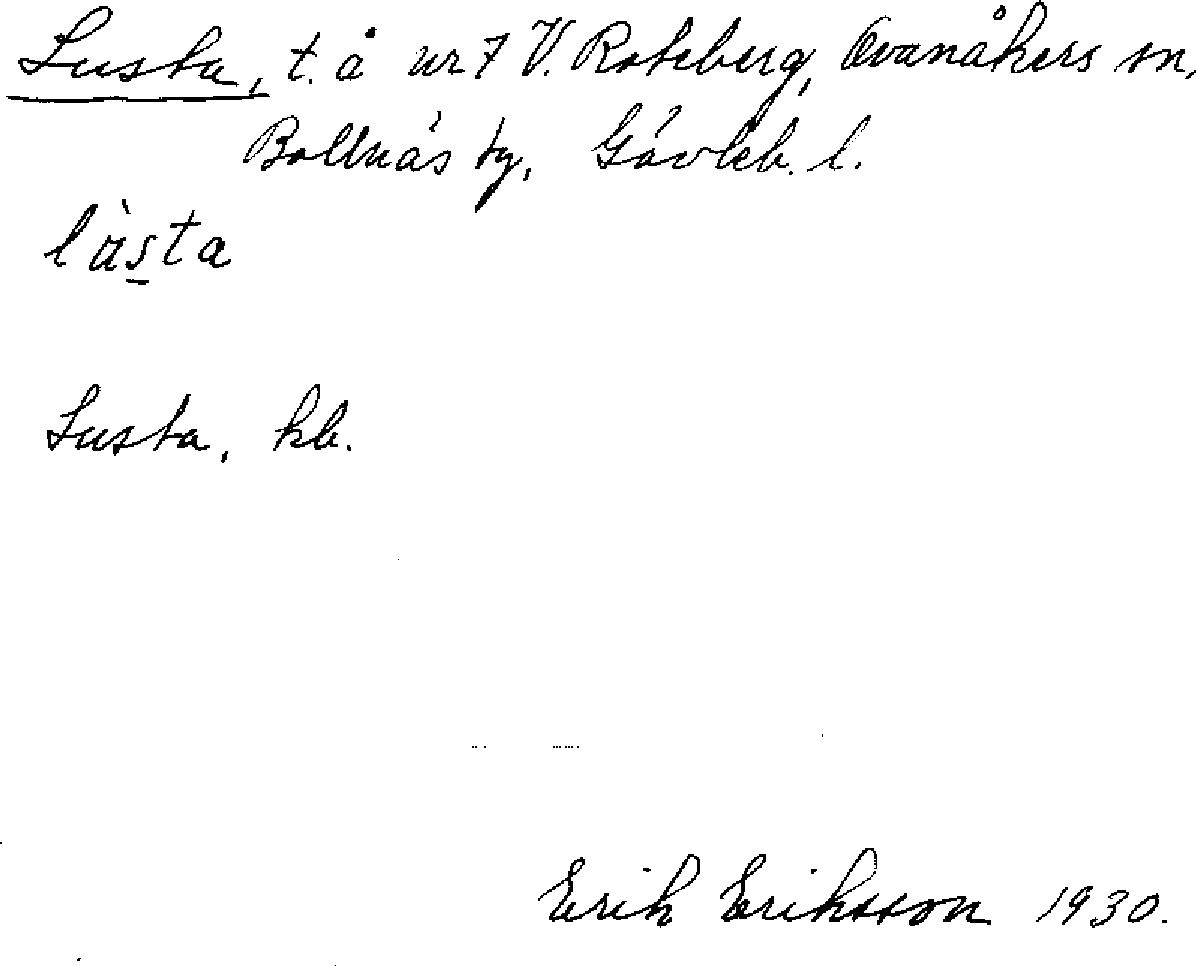 Lusta, t. å nr 7 V. Roteberg, Ovanåkers sn,
Bollnäs tg, Gävleb. l.
lùsta
Lusta, kb.
Erik Eriksson 1930.